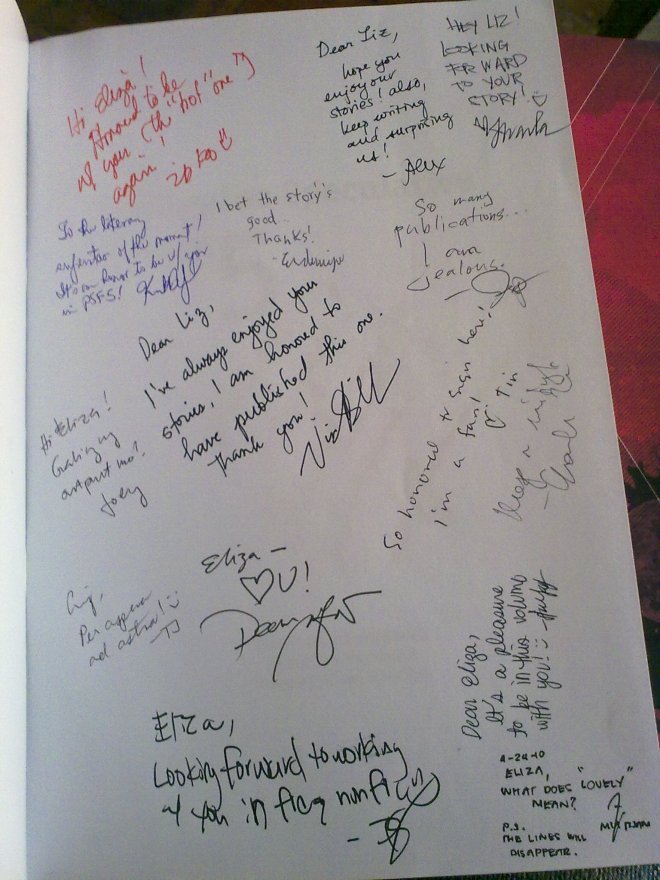 Hi Eliza!
Honored to be
w/ you (the "hot" one")
again!
Dear Liz,
hope you
enjoy our
stories! also,
keep writing
and surprising
us!
- Alex
HEY LIZ!
LOOKING
FORWARD
TO YOUR
STORY!
To the literary
of the moment!
It's an honor to be w/ you
in PSF5!
I bet the story's
good.
Thanks!
So many
publications...
I am
jealous.
Dear Liz,
I've always enjoyed your
stories, I am honored to
have published this one.
Thank you!
So honored to sign here!
I'm a fan!
♡ Tin
Hi Eliza!
Joey
Per aspera
ad astra!
-TJ
Eliza -
♡ U!
Dear Eliza,
It's a pleasure
to be in this volume
with you!
Eliza,
Looking forward to working
w/ you in ficq nonfics
4-24-10
ELIZA,
WHAT DOES "LOVELY"
MEAN?
P.S.
THE LINES WILL
DISAPPEAR.